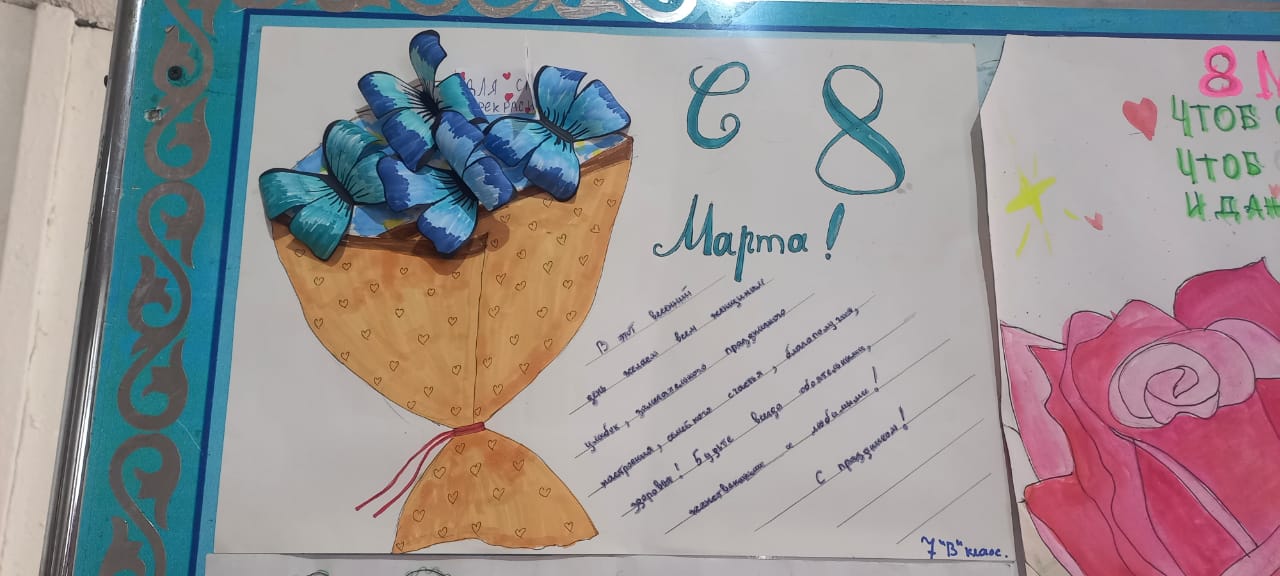 ДЛЯ
С 8
Марта!
В этот весенний
день желаем всем женщинам
улыбок, замечательного праздничного
настроения, семейного счастья, благополучия,
здоровья! Будьте всегда обаятельными,
женственными и любимыми!
С праздником!
7 "В" класс.
8
ЧТОБ
ЧТОБ
И